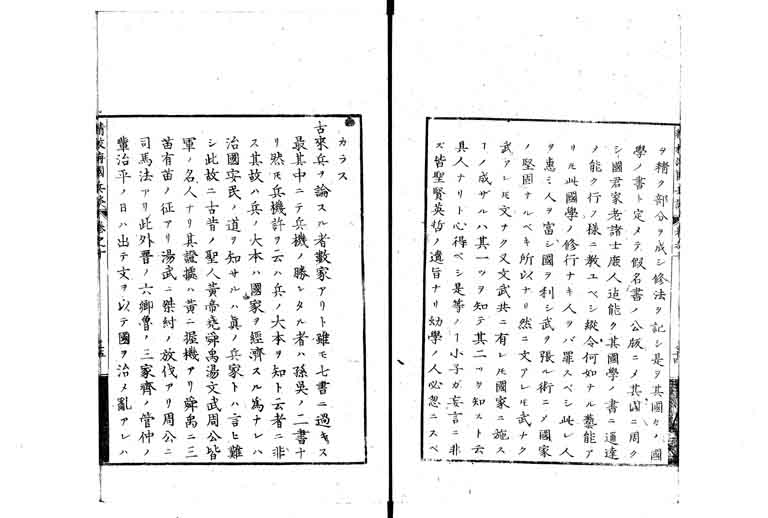 ヲ精ク部分ヲ成シ修法ヲ記シ是ヲ其國々ノ國
學ノ書ト定メテ假名書ノ公版ニメ其國ニ周ク
シ國君家老諸士庶人迠能ク其國學ノ書ニ通達
ノ能ク行ノ様ニ教ユベシ縱令何如ナル藝能ア
リ𪜈此國學ノ修行ナキ人ヲバ罪スベシ此レ人
ヲ恵ミ人ヲ富シ國ヲ利シ武ヲ張ル術ニメ國家
ノ堅固ナルベキ所以ナリ然ニ文アレ𪜈武ナク
武アレ𪜈文ナク又文武共ニ有レ𪜈國家ニ施ス
ーノ成サルハ其一ッヲ知テ其二ッヲ知スト云
具人ナリト心得ベシ是等ノー小子ガ妄言ニ非
ズ皆聖賢英哲ノ遺旨ナリ幼學ノ人必忽ニスベ
カラス
古來兵ヲ論スル者數家アリト雖モ七書ニ過キス
最其中ニテ兵機ノ勝レタル者ハ孫吳ノ二書ナ
リ然𪜈兵機許リヲ云ハ兵ノ大本ヲ知ト云者ニ非
ス其故ハ兵ノ大本ハ國家ヲ經濟スル為ナレハ
治國安民ノ道ヲ知サルハ眞ノ兵家トハ言ヒ難
シ此故ニ古昔ノ聖人黃帝堯舜禹湯文武周公皆
軍ノ名人ナリ其證據ハ黃ニ握機アリ舜禹ニ三
苗有苗ノ征アリ湯武ニ桀紂ノ放伐アリ周公ニ
司馬法アリ此外晋ノ六卿魯ノ三家齊ノ管仲ノ
輩治平ノ日ハ出テ文ヲ以テ國ヲ治メ亂アレハ